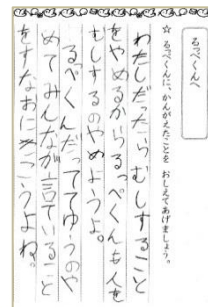 るっぺくんへ
☆ るっぺくんに、かんがえたことを おしえてあげましょう。
わたしだったらむしすること
をやめるからるっぺくんも人を
むしするのやめようよ。
るぺくんだっててゆうのや
めてみんなが言ていること
をすなおに きこうよね。